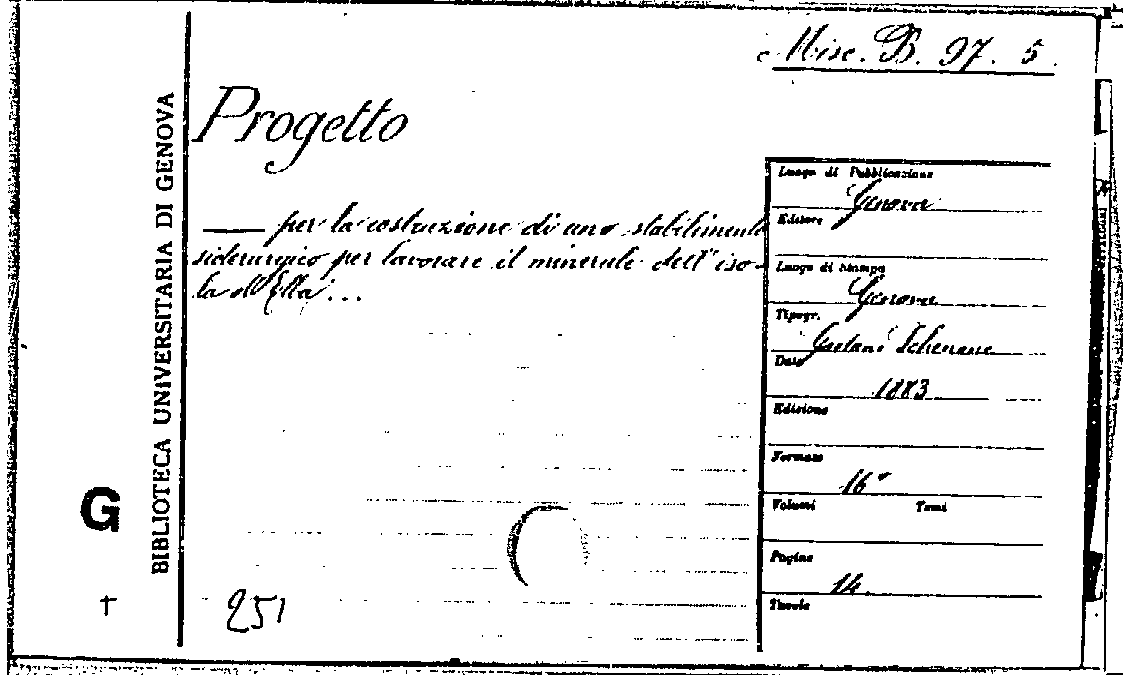 Misc. B. 97. 5.
Progetto
— per la costruzione di uno stabilimento
siderurgico per lavorare il minerale dell'iso-
la d'Elba...
BIBLIOTECA UNIVERSITARIA DI GENOVA
G
†
251
Luogo di Pubblicazione
Genova
Editore
Luogo di Stampa
Genova
Tipogr.
Schenone
Data
1883
Edizione
Formato
16°
Volumi Tomi
Pagine
14
Tavole